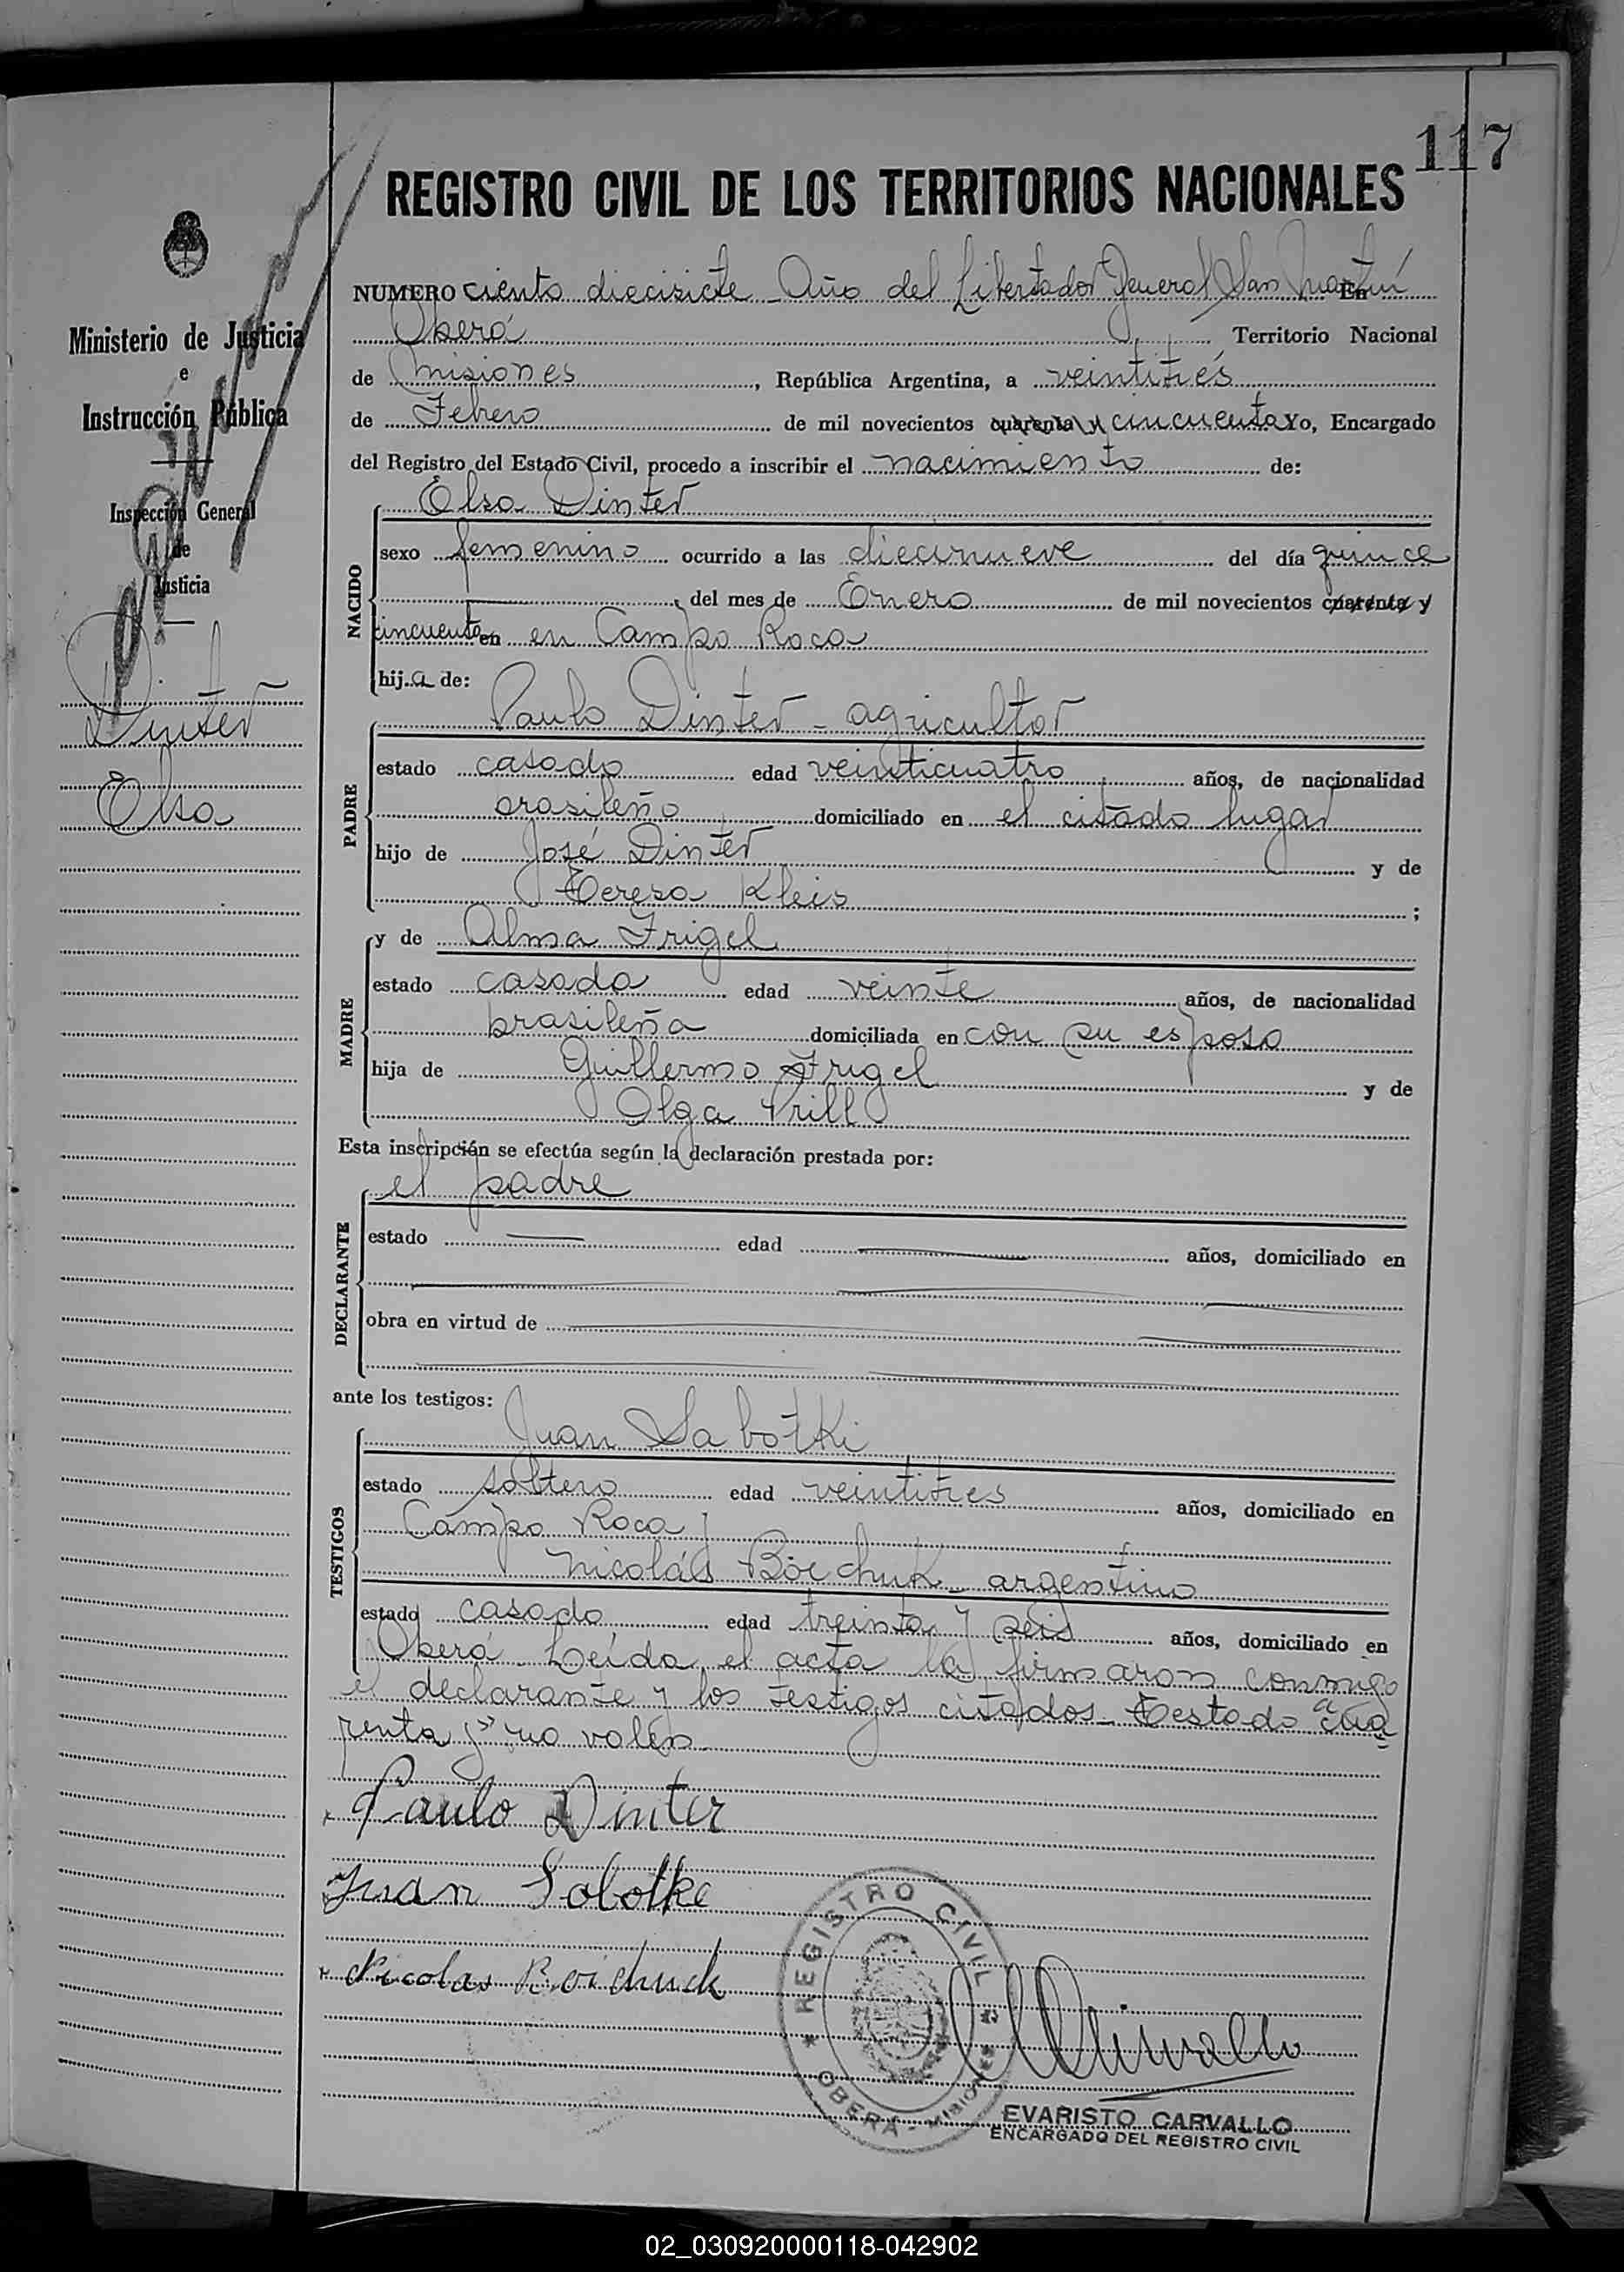 117
REGISTRO CIVIL DE LOS TERRITORIOS NACIONALES
NUMERO ciento diecisiete - Año del Libertador General San Martín En
Oberá Territorio Nacional
de Misiones, República Argentina, a veintitrés
de Febrero de mil novecientos cuarenta y cincuenta Yo, Encargado
del Registro del Estado Civil, procedo a inscribir el nacimiento de:
Elsa Dinter
NACIDO
sexo femenino ocurrido a las diecinueve del día quince
, del mes de Enero de mil novecientos cuarenta y
cincuenta en en Campo Roca
hij a de:
Paulo Dinter - agricultor
PADRE
estado casado edad veinticuatro años, de nacionalidad
brasileño domiciliado en el citado lugar
hijo de José Dinter y de
Teresa Kleis ;
y de Alma Frigel
MADRE
estado casada edad veinte años, de nacionalidad
brasileña domiciliada en con su esposo
hija de Guillermo Frigel y de
Olga Prill
Esta inscripción se efectúa según la declaración prestada por:
el padre
DECLARANTE
estado — edad — años, domiciliado en
obra en virtud de
ante los testigos:
Juan Sabotki
TESTIGOS
estado soltero edad veintitres años, domiciliado en
Campo Roca y
Nicolás Boichuk - argentino
estado casado edad treinta y seis años, domiciliado en
Oberá - Leída el acta la firmaron conmigo
el declarante y los testigos citados - Testado "cua
renta y" no valen
Paulo Dinter
Juan Sobotke
Nicolas Boichuck
REGISTRO CIVIL
OBERÁ - MISIONES
EVARISTO CARVALLO
ENCARGADO DEL REGISTRO CIVIL
Ministerio de Justicia
e
Instrucción Pública
Inspección General
de
Justicia
Dinter
Elsa
02_030920000118-042902